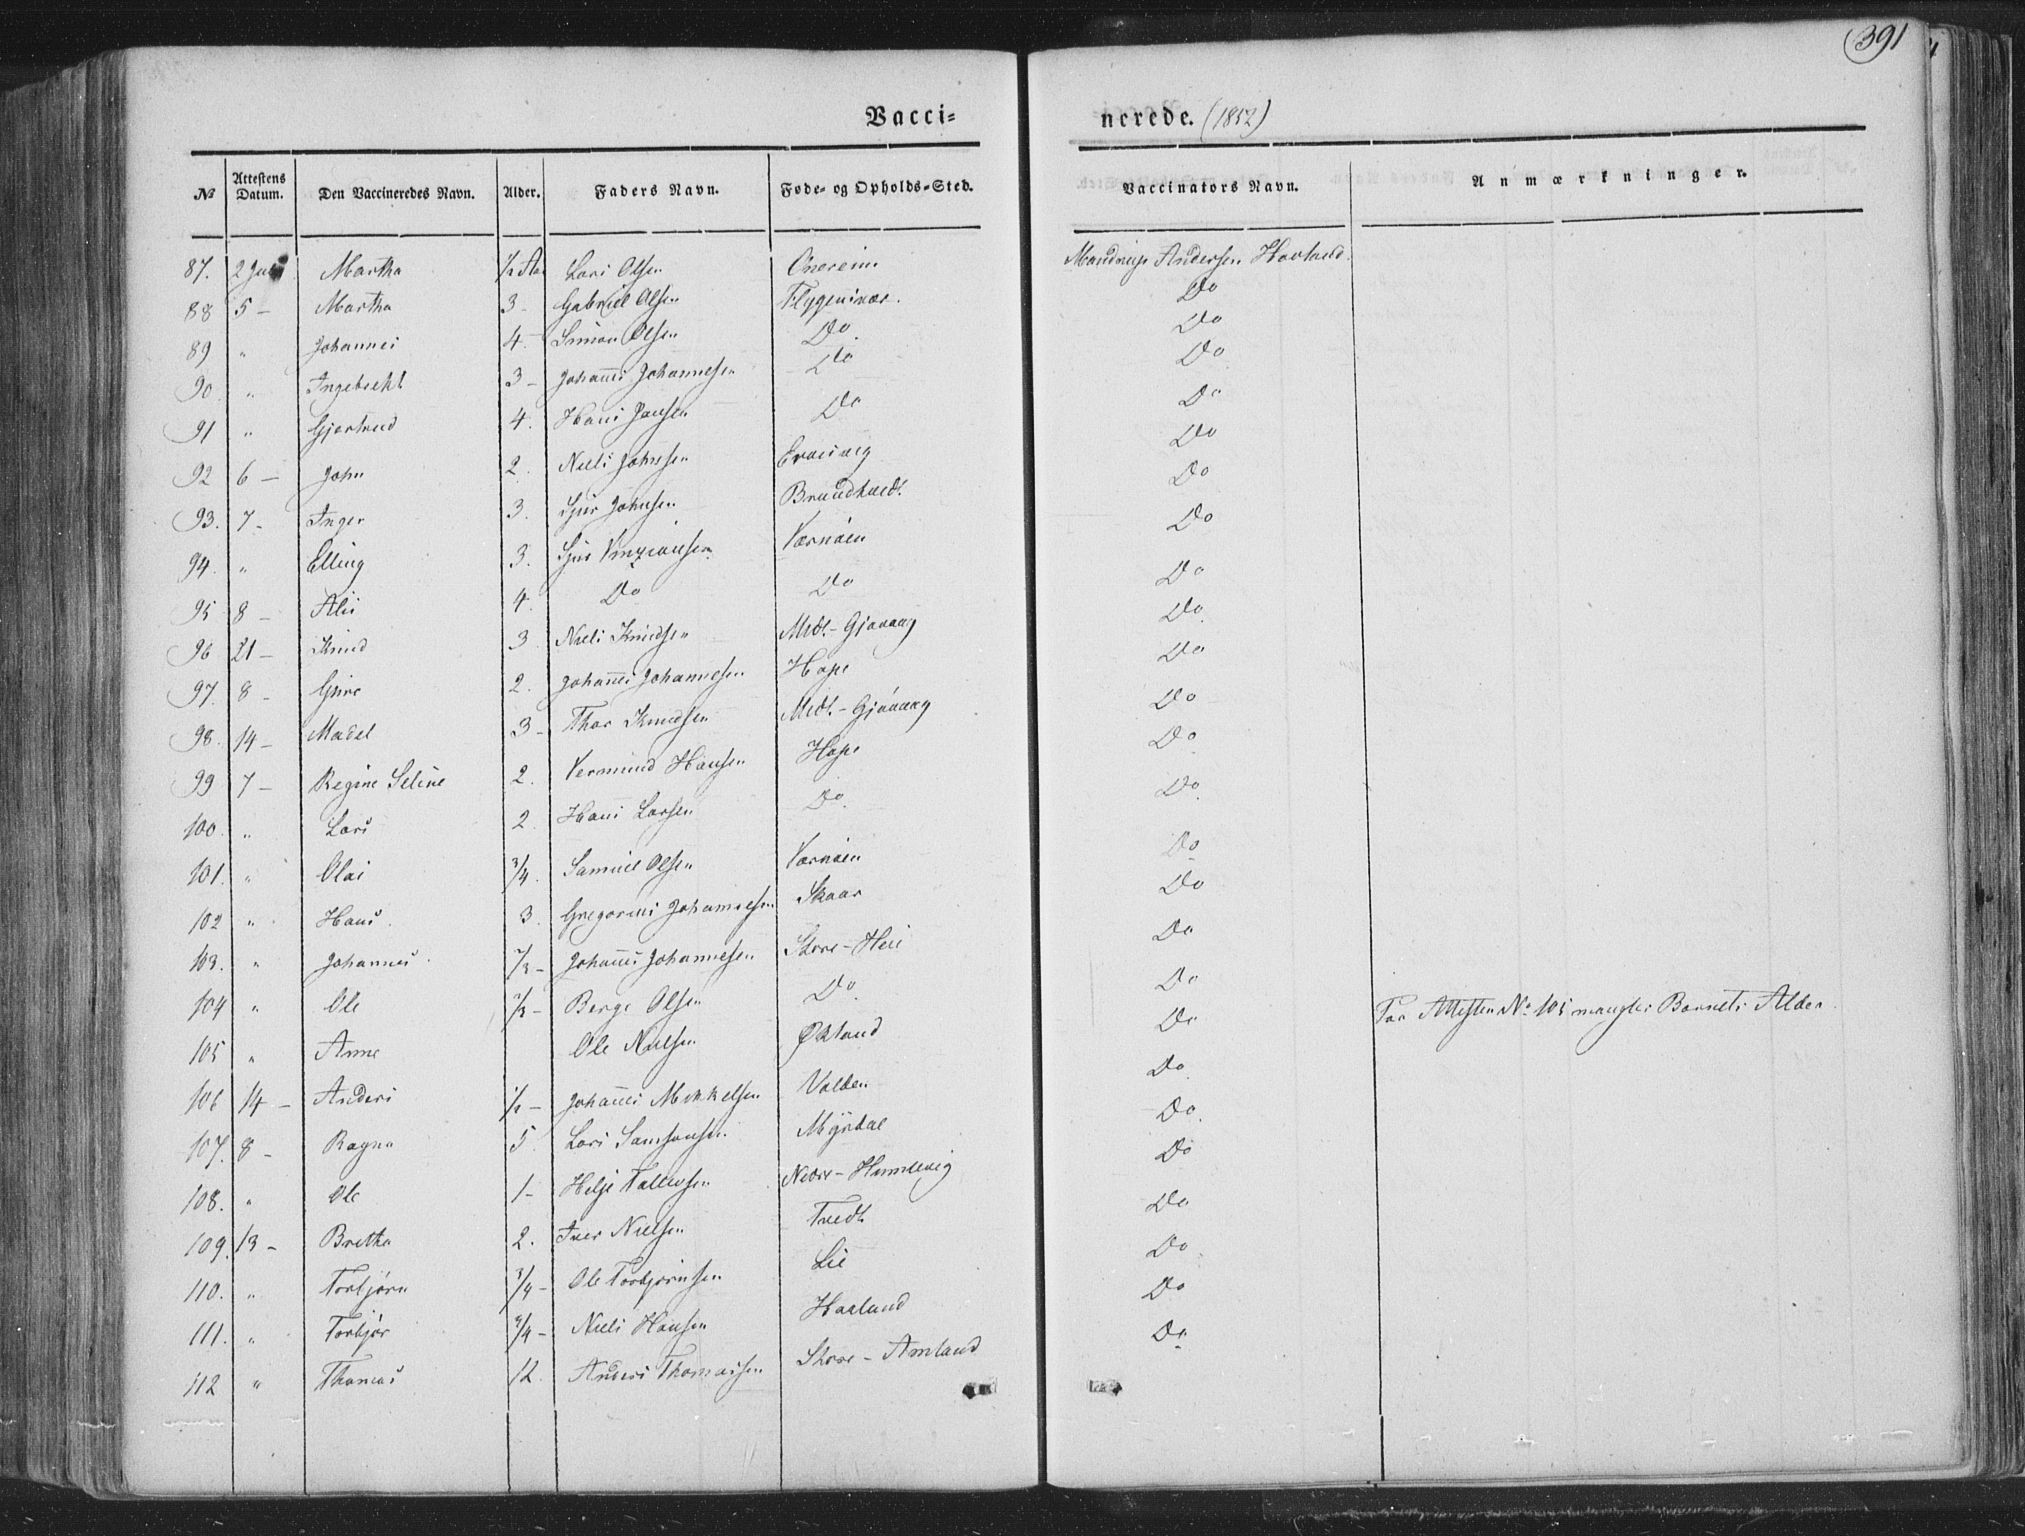 391
Vacci- nerede. (1852)
№ Attestens Datum. Den Vaccineredes Navn. Alder. Faders Navn. Føde- og Opholds-Sted. Vaccinators Navn. Anmærkninger.
87. 2 Juli Martha 1/2 Aar Lars Olsen Onereim Andersen Havland
88 5 – Martha 3 – Gabriel Olsen Flygenvær. Do
89 " Johannes 4 – Simon Olsen Do. Do
90 " Ingebreht 3 – Johannes Johannesen Do Do
91 " Gjertrud 4. Hans Jansen Do Do
92 6 – John 2. Niels Johnsen Do
93. 7 – Inger 3. Sjur Johnsen Brandtvedt. Do
94. " Elling 3. Sjur Vernøen Do
95 8 – Alis 4. Do Do Do
96 21 – Knud 3 Niels Knudsen Medt.- Gjøvaag Do.
97. 8 – Guro 2. Johannes Johannesen Hope Do
98. 14 – Madel 3 – Thor Knudsen Medt.- Gjøvaag Do
99 7 – Regine Seline 2. Vermund Hansen Hope Do
100. " Lars 2. Hans Larsen Do. Do
101. " Olai 3/4. Samuel Olsen Vernøen Do
102 " Hans. 3. Gregorius Johannesen Skaar Do
103. " Johannes. 2/3 – Johannes Johannesen Store - Do
104 " Ole 2/3 – Berge Olsen Do. Do
105 " Anne Ole Nielsen Økland Do Paa Attesten No 105 mangler Barnets Alder.
106 14 – Anders 1/2 – Johannes Mikkelsen Valden Do
107. 8 – Ragna 5. Lars Samsonsen Myrdal Do.
108. " Ole 1 – Helje Tollevsen Nedre - Humlevig Do
109. 13 – Bretha 2. Iver Nielsen Tvedt Do
110. " Torbjørn 3/4 – Ole Torbjørnsen Lie Do
111. " Torbjør 3/4 – Niels Hansen Haaland Do
112 " Thomas 12. Anders Thomassen Store - Amland Do